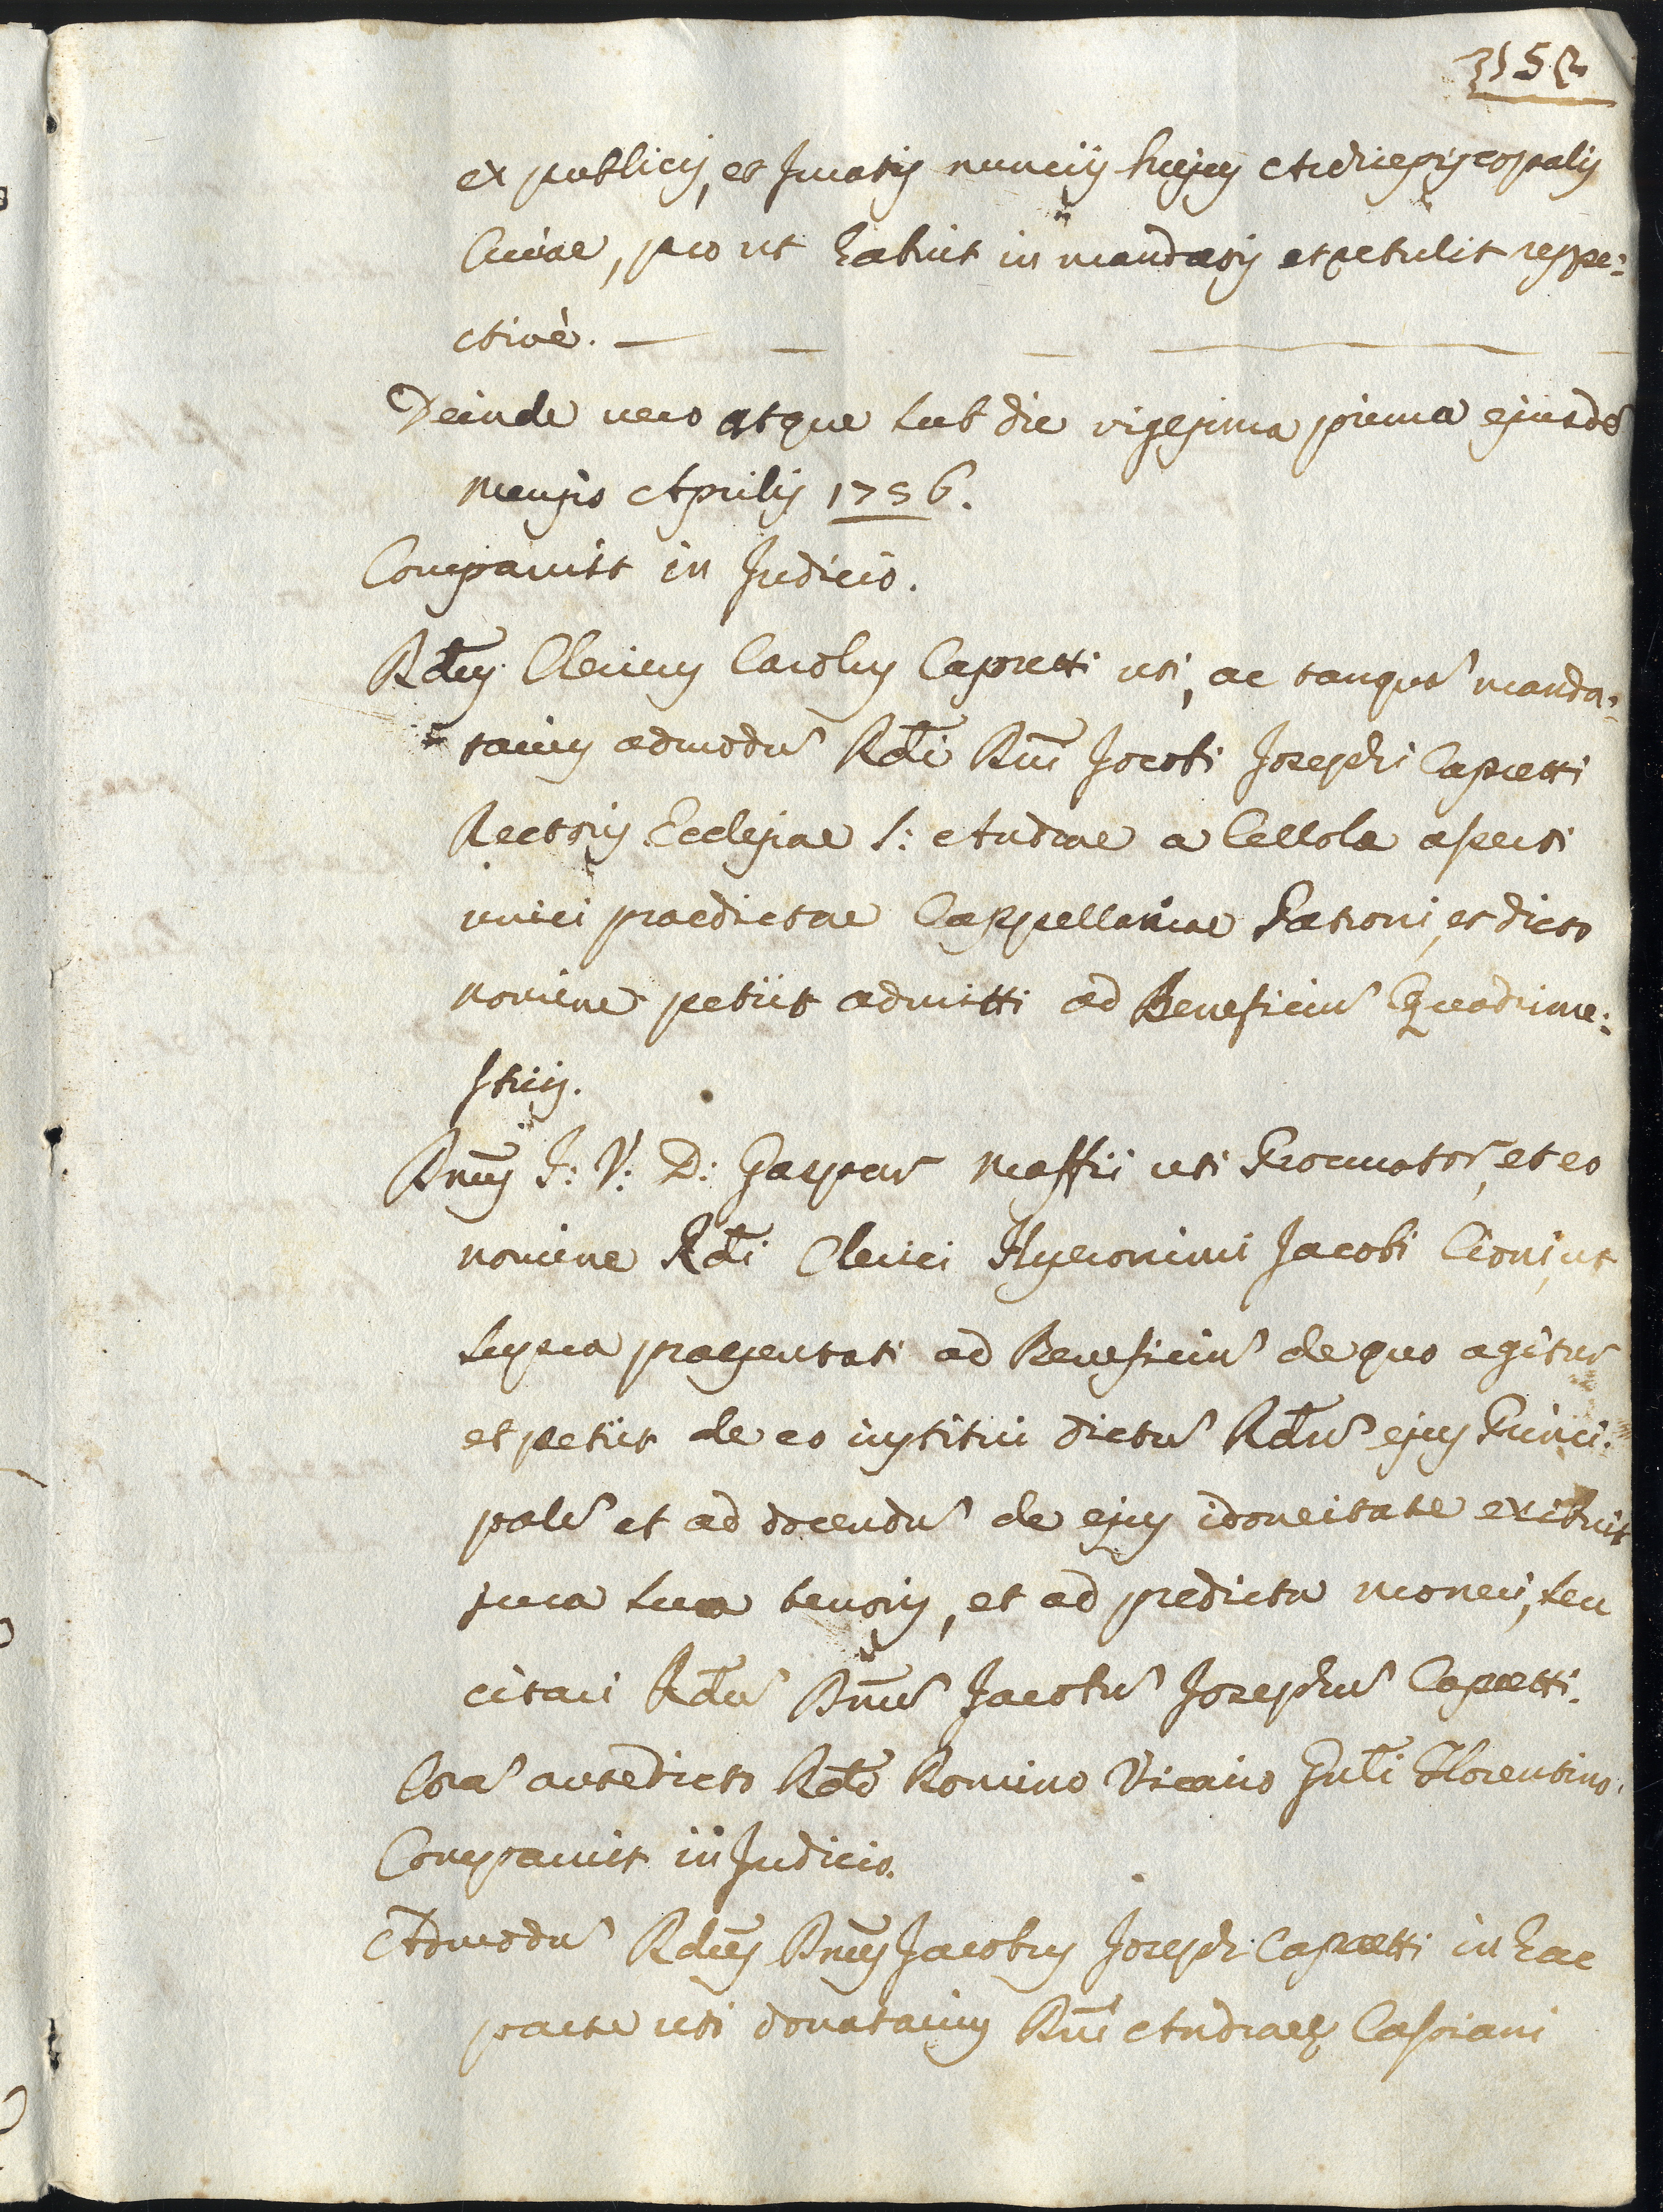 ex publicis, et Juratis nunciis hujus Archiepiscopalis
Curiae, pro ut habuit in mandatis et retulit respe:
ctivè.
Deinde vero atque sub die vigesima prima ejusdẽ
mensis Aprilis 1756.
Comparuit in Judicio.
Rdus Clericus Carolus Capretti uti, ac tanquã manda:
tarius admodũ Rdi Dni Jacobi Josephi Capretti
Rectoris Ecclesiae S: Andreae a Cellole asserti
unici praedictae Cappellaniae Patroni, et dicto
nomine petiit admitti ad Beneficiũ Quadrime:
stris.
Dnus J: V: D: Gaspar Maffii uti Procurator, et eo
nomine Rdi Clerici Hyeronimi Jacobi Cioni, ut
supra praesentati ad Beneficiũ de quo agitur
et petiit de eo institui dictũ Rdũ ejus Princi:
palẽ et ad docendũ de ejus idoneitate exibuit
jura sua tenoris, et ad predicta moneri, seu
citari Rdũ Dnũ Jacobũ Josephũ Capretti.
Corã antedicto Rdo Domino Vicario Gnli Florentino.
Comparuit in Judicio.
Admodũ Rdus Dnus Jacobus Joseph Capretti in hac
parte uti donatarius Dni Andreae Cassiani